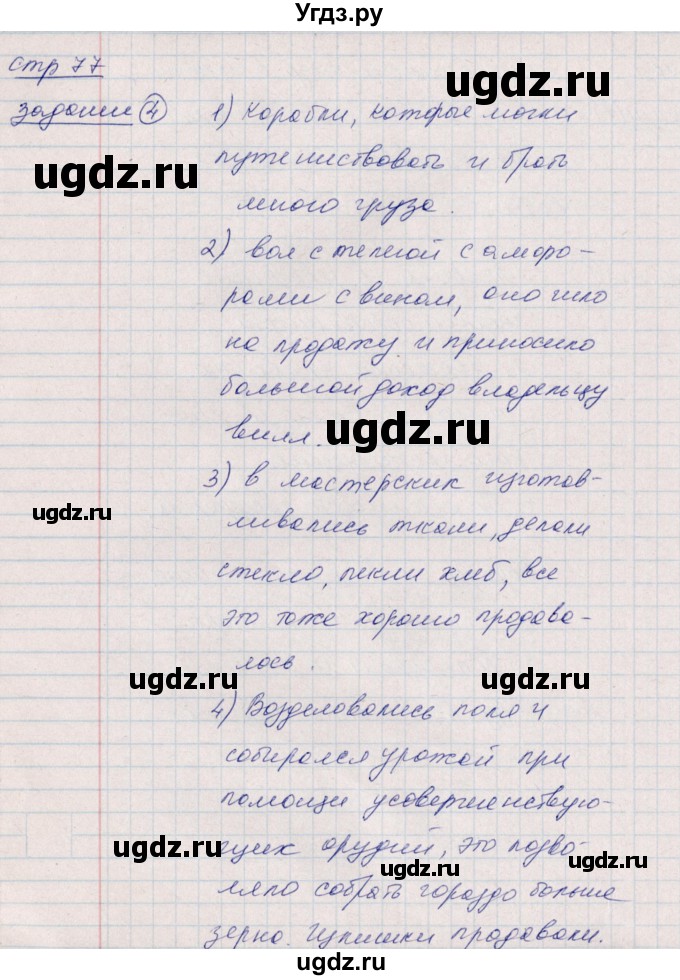 Угдз.ру
стр 77
ugdz.ru
задание 4
1) Корабли, которые могли
ugdz.ru
путешествовать и брать
много груза.
ugdz.ru
2) вол с телегой с аморо-
рами с вином, оно шло
на продажу и приносило
большой доход владельцу
вилл.
ugdz.ru
3) В мастерских изготав-
ugdz.ru
ugdz.ru
ливались ткани, делали
стекло, пекли хлеб, все
это тоже хорошо продава-
лось.
ugdz.ru
ugdz.ru
4) Возделовались поля и
собирался урожай при
помощи усовершенствую-
щих орудий, это позво-
ugdz.ru
ugdz.ru
ляло собрать гораздо больше
зерно. Излишки продавали.
ugdz.ru